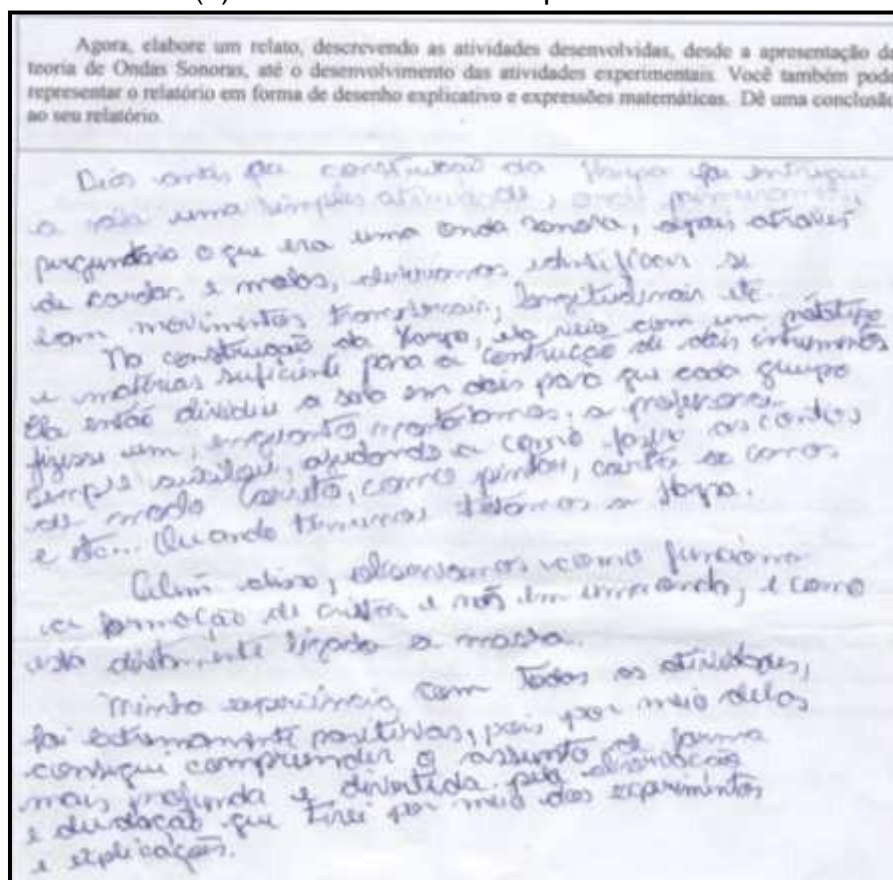 Agora, elabore um relato, descrevendo as atividades desenvolvidas, desde a apresentação da
teoria de Ondas Sonoras, até o desenvolvimento das atividades experimentais. Você também pode
representar o relatório em forma de desenho explicativo e expressões matemáticas. Dê uma conclusão
ao seu relatório.
Dias antes da construção da Harpa foi entregue
a uma simples atividade, onde primeiramente
o que era uma onda sonora, depois através
de cordas e molas, identificar se
eram movimentos transversais, longitudinais etc.
Na construção da Harpa, ela veio com um protótipo
e suficiente para a de dois
Ela então dividiu a sala em dois para que cada grupo
fizesse um, enquanto a professora
sempre ajudando a como as cordas
de modo como pintar,
e etc... Quando a Harpa.
Além disso, observamos como funciona
a formação de cristas e nós em uma onda, e como
está ligado a massa.
Minha experiência com todas as atividades,
foi positivas, pois por meio delas
consegui compreender o assunto de forma
mais profunda e divertida pela
e que tirei por meio dos experimentos
e explicações.